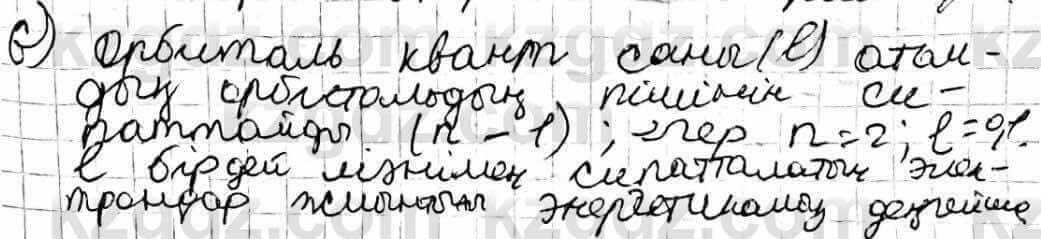 б) орбиталь квант саны (l) атом-
дық орбитальдың пішінін си-
паттайды (n - 1); егер n = 2; l = 0,1.
l бірдей мәнімен сипатталатын элек-
трондар жиынтығы энергетикалық деңгейше